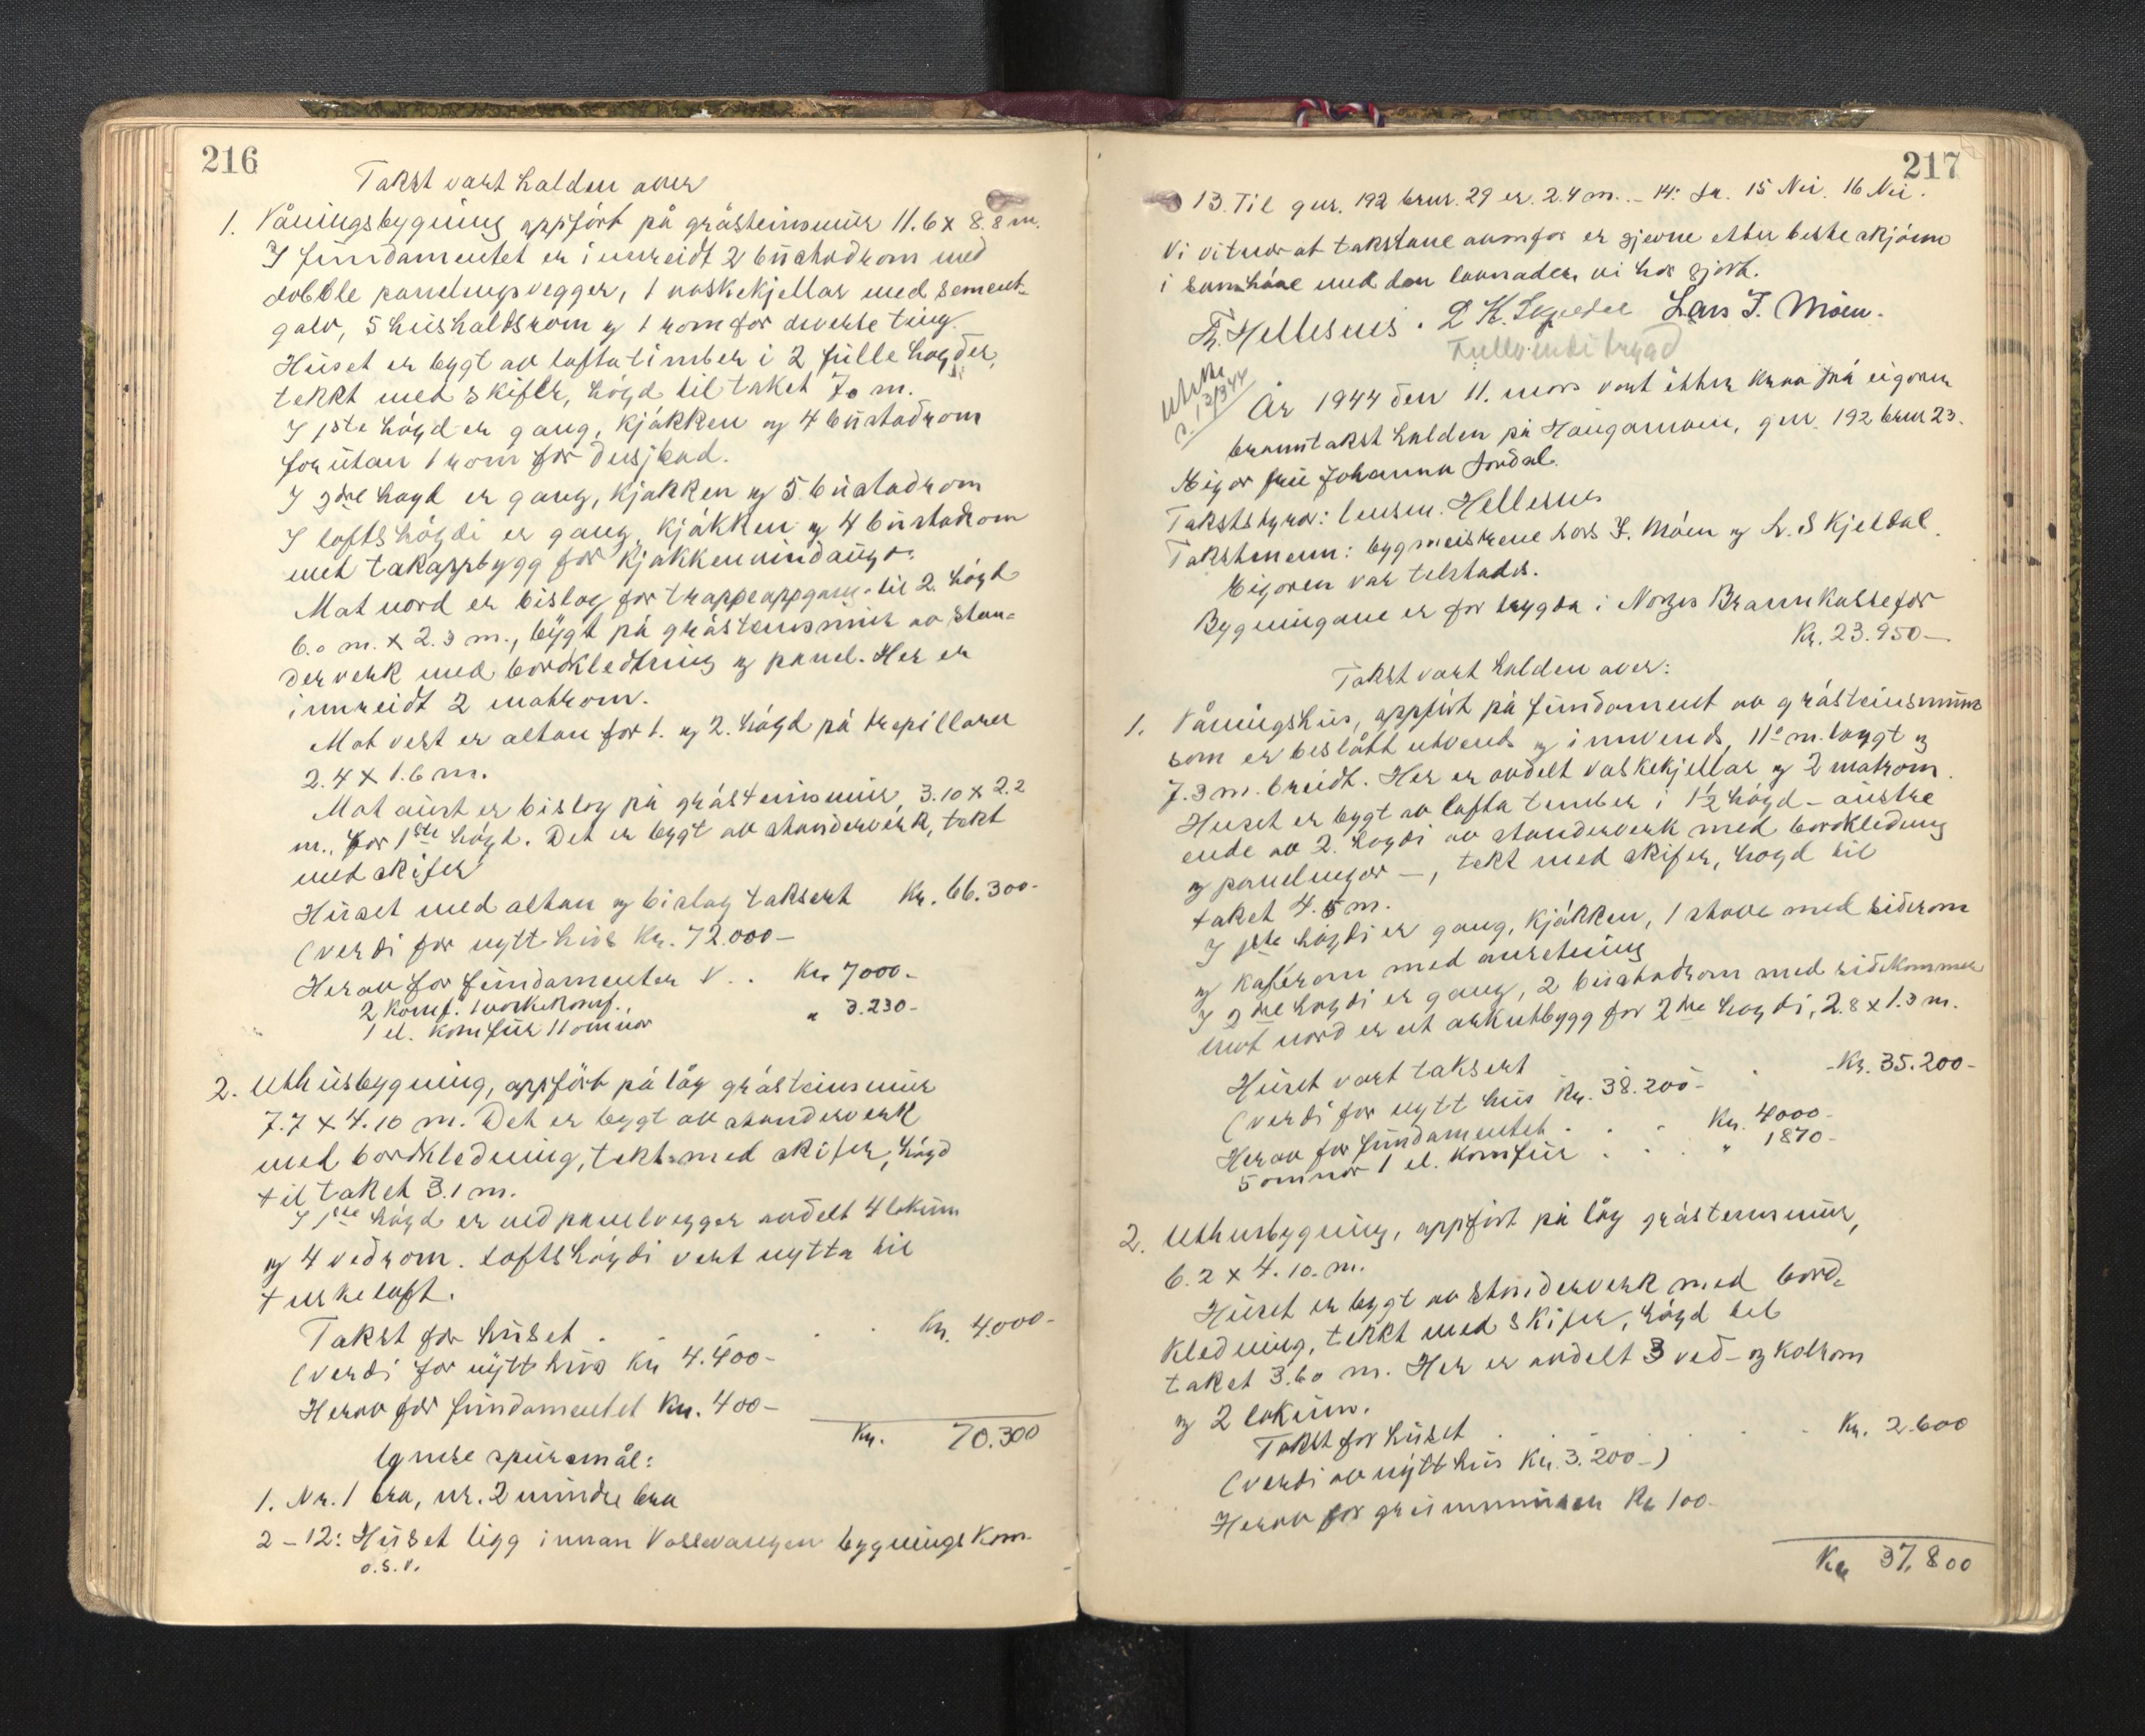 216
Takst vart halden over
1. Våningsbygning oppført på gråsteinsmur 11.6 x 8.8 m.
I fundamentet er innreidt 2 bustadrom med
dobble panelingsvegger, 1 vaskekjellar med sement-
golv, 5 hushaldsrom og 1 rom for diverse ting.
Huset er bygt av lafta timber i 2 fulle høgder,
tekkt med skifer, høgd til taket 7.0 m.
I 1ste høgd er gang, kjøkken og 4 bustadrom
forutan 1 rom for dusjbad.
I 2dre høgd er gang, kjøkken og 5 bustadrom
I loftshøgdi er gang, kjøkken og 4 bustadrom
med takoppbygg for kjøkkenvindauga.
Mot nord er bislag for trappeoppgang til 2. høgd
6.0 m. x 2.3 m., bygt på gråsteinsmur av stan-
derverk med bordkledning og panel. Her er
innreidt 2 matrom.
Mot vest er altan for 1. og 2. høgd på trepillarer
2.4 x 1.6 m.
Mot aust er bislag på gråsteinsmur, 3.10 x 2.2
m., for 1ste høgd. Det er bygt av standerverk, tekt
med skifer
Huset med altan og bislag taksert Kr. 66.300-
(verdi for nytt hus Kr. 72.000-
Herav for fundamenter V . . Kr. 7000-
2 komf. 1 vaskekomf.
1 el. komfur 11 omnar " 3.230-
2. Uthusbygning, oppført på låg gråsteinsmur
7.7 x 4.10 m. Det er bygt av standerverk
med bordkledning, tekt med skifer, høgd
til taket 3.1 m.
I 1ste høgd er med panelvegger avdelt 4 lokum
og 4 vedrom. Loftshøgdi vert nytta til
turkeloft.
Takst for huset . . . Kr. 4000-
(verdi for nytt hus Kr 4.400-
Herav for fundamentet Kr. 400-
Kr. 70.300
Ymse spursmål:
1. Nr. 1 bra, nr. 2 mindre bra
2 - 12: Huset ligg innan Vossevangen bygningskom.
o.s.v.
217
13. Til gnr. 192 brnr. 29 er 2.4 m. - 14: Ja. 15 Nei. 16 Nei.
Vi vitnar at takstane ovanfor er gjevne etter beste skjønn
i samhøve med den lovnaden vi har gjort.
Th. Hellesnes. Lars I. Møen.
Fullverditrygd
Utskr.
13/3 44
År 1944 den 11. mars vart etter krav frå eigaren
branntakst halden på Haugamoen, gnr. 192 brnr 23.
Eigar fru Johanna Jordal.
Takststyrar: lensm. Hellesnes
Takstmenn: bygmeistrene Lars I. Møen og L. Skjeldal.
Eigaren var tilstades.
Bygningane er for trygda i Norges Brannkasse for
Kr. 23.950-
Takst vart halden over:
1. Våningshus, oppført på fundament av gråsteinsmur
som er beslått utvends og innvends, 11.0 m. langt og
7.3 m. breidt. Her er avdelt vaskekjellar og 2 matrom.
Huset er bygt av lafta timber i 1½ høgd - austre
ende av 2. høgdi av standerverk med bordkledning
og panelingar -, tekt med skifer, høgd til
taket 4.5 m.
I 1ste høgdi er gang, kjøkken, 1 stove med siderom
og kaferom med anretning
I 2dre høgdi er gang, 2 bustadrom med sidekammer
Mot nord er eit arkutbygg for 2dre høgdi, 2.8 x 1.3 m.
Huset vart taksert . Kr. 35.200-
(verdi for nytt hus Kr. 38.200-
Herav for fundamentet . . . Kr. 4000-
5 omnar 1 el. komfur . . . " 1870-
2. Uthusbygning, oppført på låg gråsteinsmur,
6.2 x 4.10. m.
Huset er bygt av standerverk med bord-
kledning, tekkt med skifer, høgd til
taket 3.60 m. Her er avdelt 3 ved- og kolrom
og 2 lokum.
Takst for huset . . . . Kr. 2.600
(verdi av nytt hus Kr. 3.200-)
Herav for grunnmuren Kr 100-
Kr 37.800